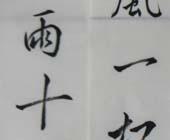 風一
雨十